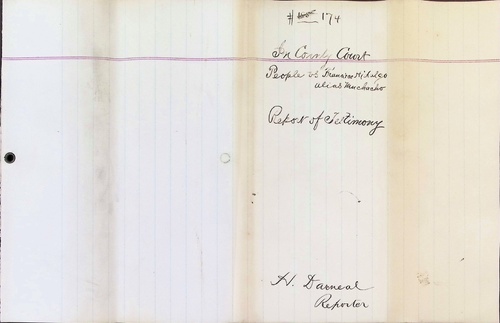 # 174
In County Court
People vs Francisco Hidalgo
alias Muchacho
Report of Testimony
H. Darneal
Reporter